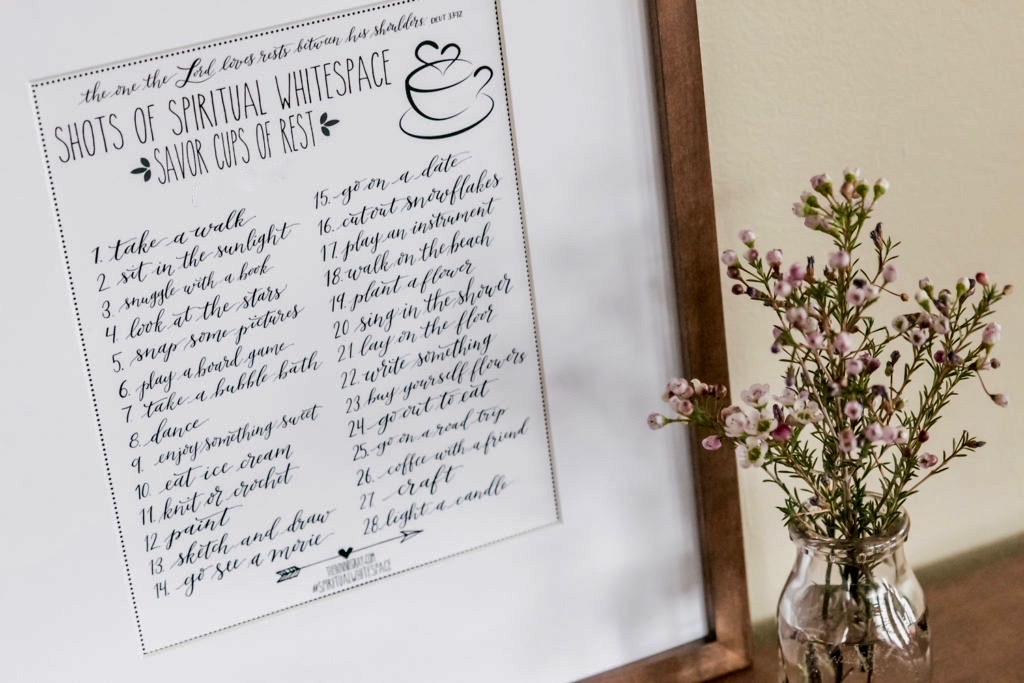 the one the Lord loves rests between his shoulders. DEUT 33:12
SHOTS OF SPIRITUAL WHITESPACE
SAVOR CUPS OF REST
1. take a walk
2 sit in the sunlight
3. snuggle with a book
4. look at the stars
5. snap some pictures
6. play a board game
7 take a bubble bath
8 dance
9. enjoy something sweet
10. eat ice cream
11. knit or crochet
12 paint
13. sketch and draw
14. go see a movie
15. go on a date
16. cut out snowflakes
17. play an instrument
18. walk on the beach
19. plant a flower
20 sing in the shower
21 lay on the floor
22. write something
23 buy yourself flowers
24. go out to eat
25. go on a road trip
26. coffee with a friend
27 craft
28. light a candle
THEBONNIEGRAY.COM
#SPIRITUALWHITESPACE